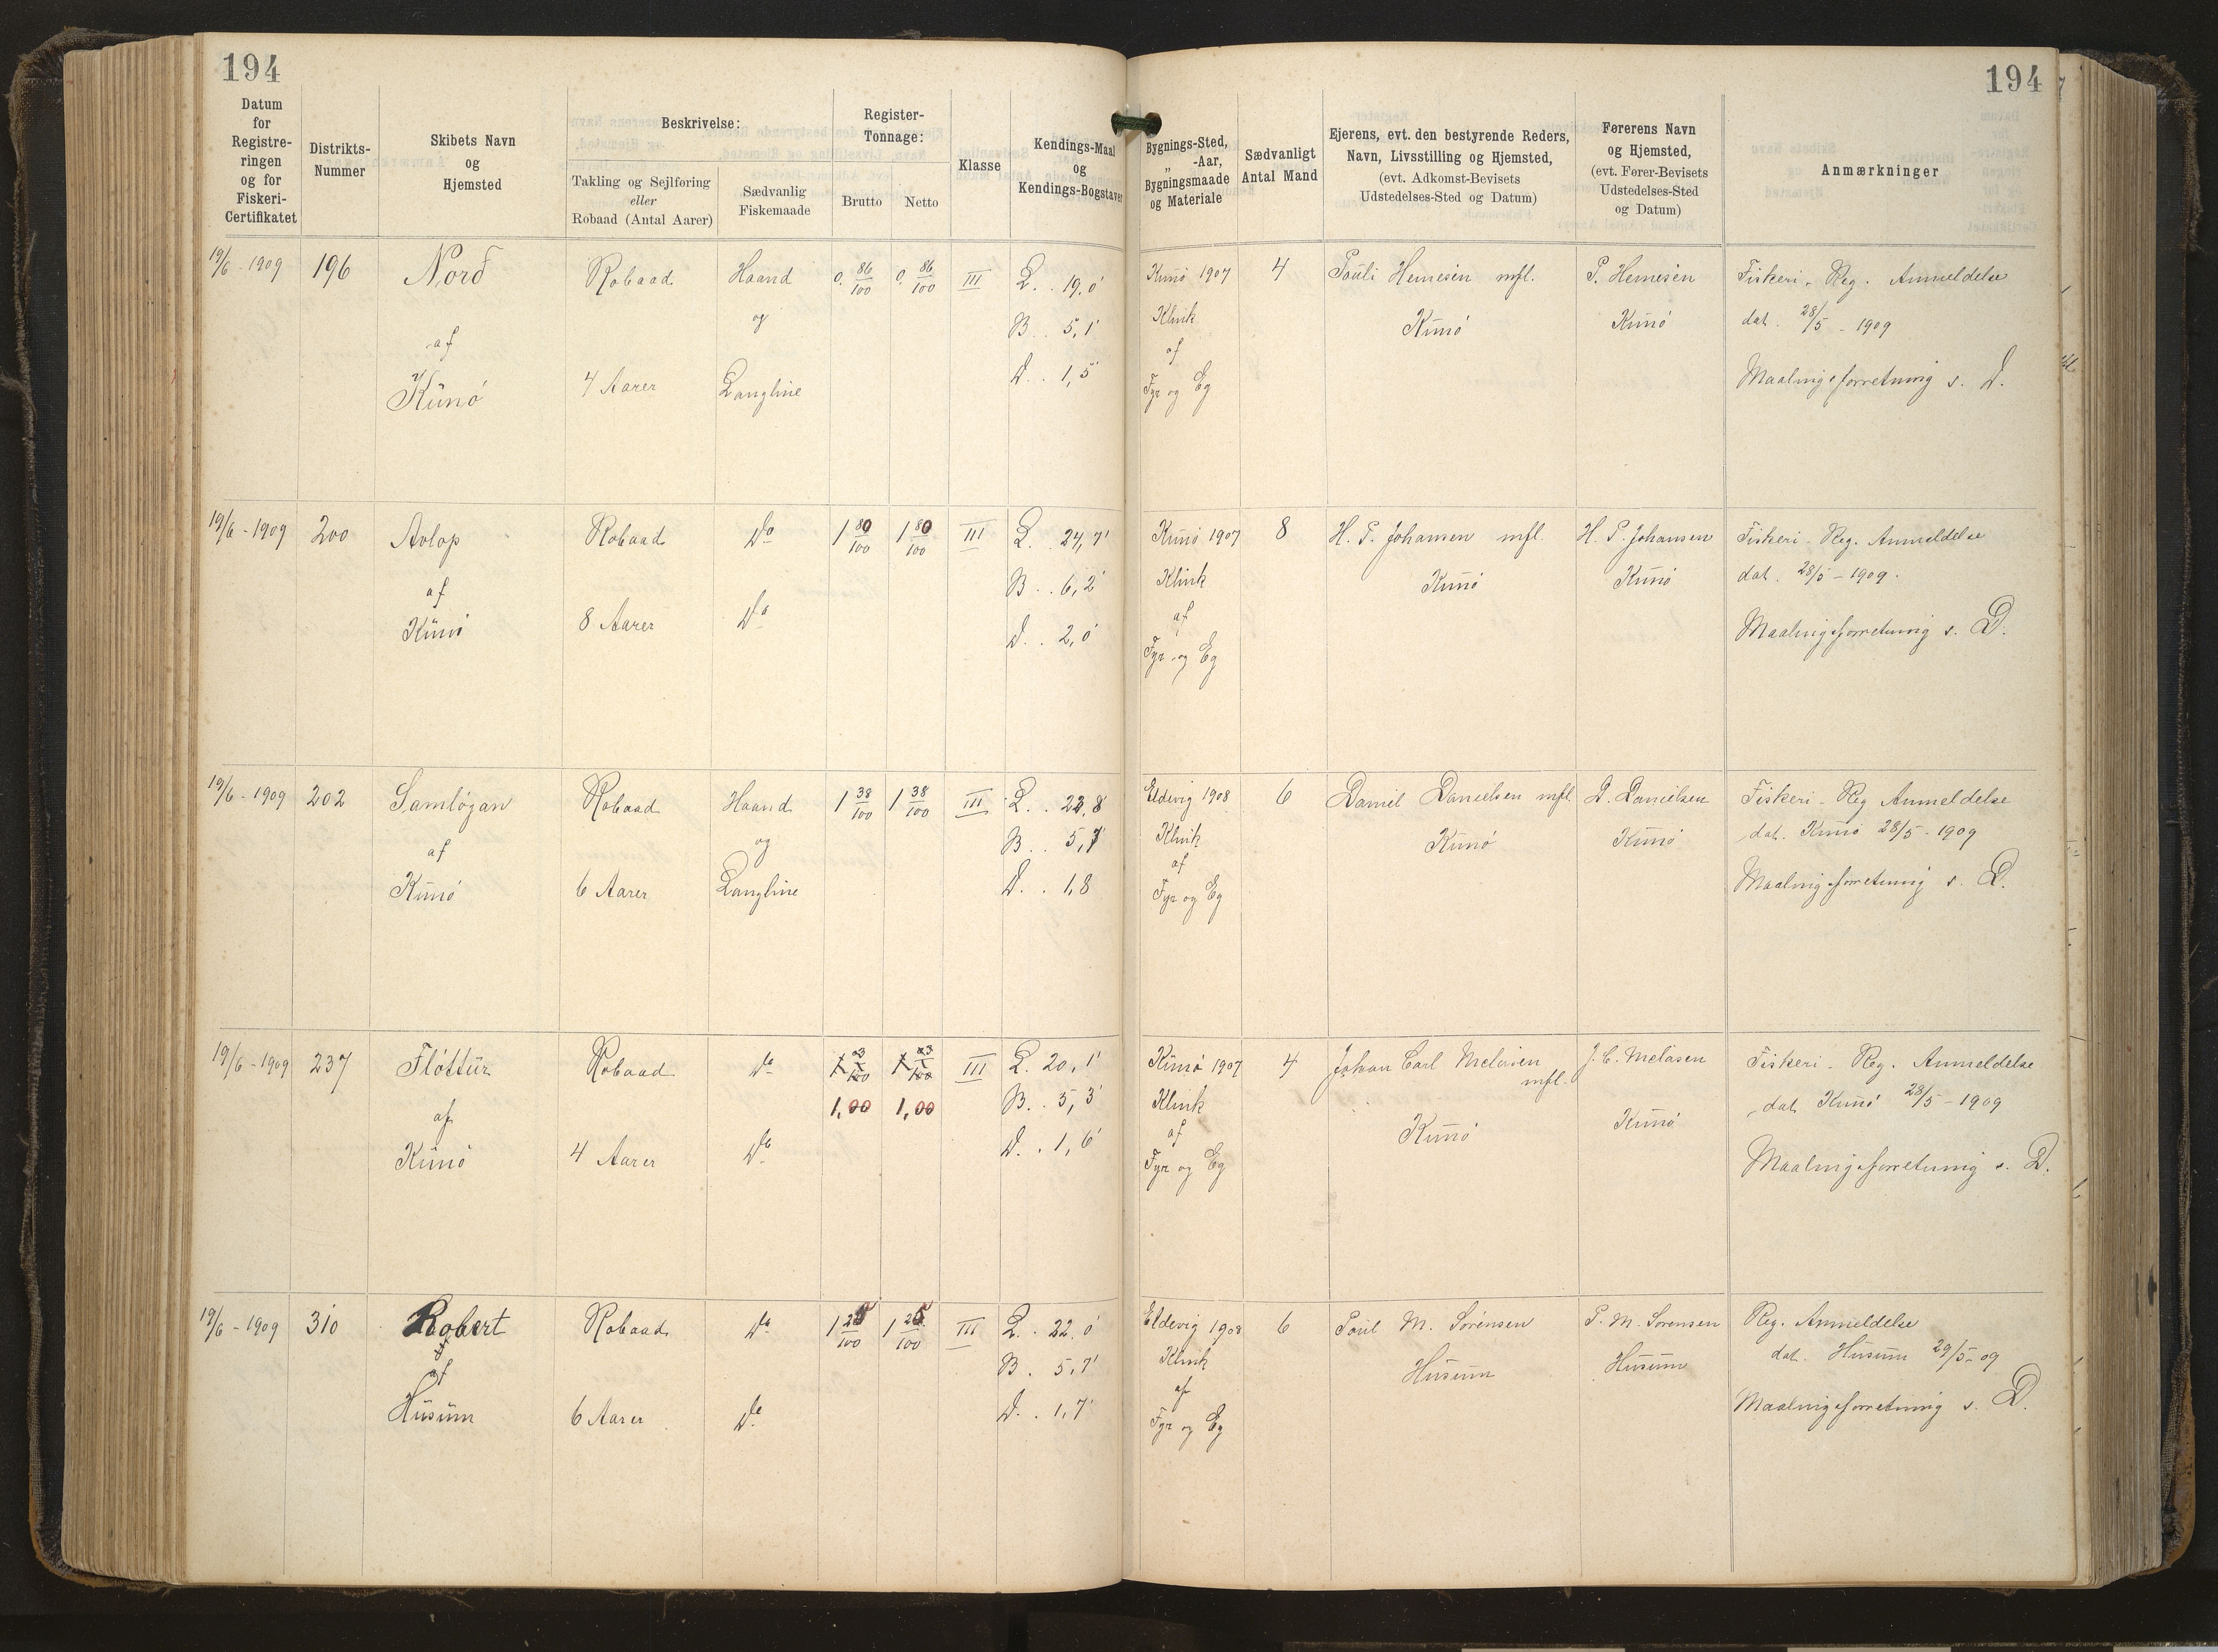 194
194
Datum
for
Registre-
ringen
og for
Fiskeri-
Certifikatet
Distrikts-
Nummer
Skibets Navn
og
Hjemsted
Beskrivelse:
Takling og Sejlføring
eller
Robaad (Antal Aarer)
Sædvanlig
Fiskemaade
Register-
Tonnage:
Brutto
Netto
Klasse
Kendings-Maal
og
Kendings-Bogstaver
Bygnings-Sted,
-Aar,
„
Bygningsmaade
og Materiale
Sædvanligt
Antal Mand
Ejerens, evt. den bestyrende Reders,
Navn, Livsstilling og Hjemsted,
(evt. Adkomst-Bevisets
Udstedelses-Sted og Datum)
Førerens Navn
og Hjemsted,
(evt. Fører-Bevisets
Udstedelses-Sted
og Datum)
Anmærkninger
19/6 - 1909
196
Nord
af
Kunö
Robaad
4 Aarer
Haand
og
Langline
0. 86/100
0. 86/100
III
L. . 19,0'
B. . 5,1'
D. . 1,5'
Kunö 1907
Klink
af
Fyr og Eg
4
Pouli Hemesen mfl.
Kunö
P. Hemesen
Kunö
Fiskeri-Reg. Anmeldelse
dat. 28/5 - 1909
Maalingsforretning s. D.
19/6 - 1909
200
Avlop
af
Kunö
Robaad
8 Aarer
Do
Do
1 80/100
1 80/100
III
L. . 24,7'
B. . 6,2'
D. . 2,0'
Kunö 1907
Klink
af
Fyr og Eg
8
H. P. Johansen mfl.
Kunö
H. P. Johansen
Kunö
Fiskeri-Reg. Anmeldelse
dat. 28/5 - 1909.
Maalingsforretning s. D.
19/6 - 1909
202
Samlögan
af
Kunö
Robaad
6 Aarer
Haand
og
Langline
1 38/100
1 38/100
III
L. . 22,8
B. . 5,7
D. . 1,8
Eldevig 1908
Klink
af
Fyr og Eg
6
Daniel Danielsen mfl.
Kunö
D. Danielsen
Kunö
Fiskeri-Reg Anmeldelse
dat. Kunö 28/5 - 1909
Maalingsforretning s. D.
19/6 - 1909
237
Flöttur
af
Kunö
Robaad
4 Aarer
Do
Do
1,00
1,00
III
L. 20,1'
B. . 5,3'
D. . 1,6'
Kunö 1907
Klink
af
Fyr og Eg
4
Johan Carl
mfl.
Kunö
J. C.
Kunö
Fiskeri-Reg. Anmeldelse
dat. Kunö 28/5 - 1909
Maalingsforretning s. D.
19/6 - 1909
310
Robert
af
Husum
Robaad
6 Aarer
Do
Do
1 25/100
1 25/100
III
L. . 22,0'
B. . 5,7'
D. . 1,7'
Eldevig 1908
Klink
af
Fyr og Eg
6
Poul M. Sörensen
Husum
P. M. Sörensen
Husum
Reg. Anmeldelse
dat. Husum 29/5-09
Maalingsforretning s. D.